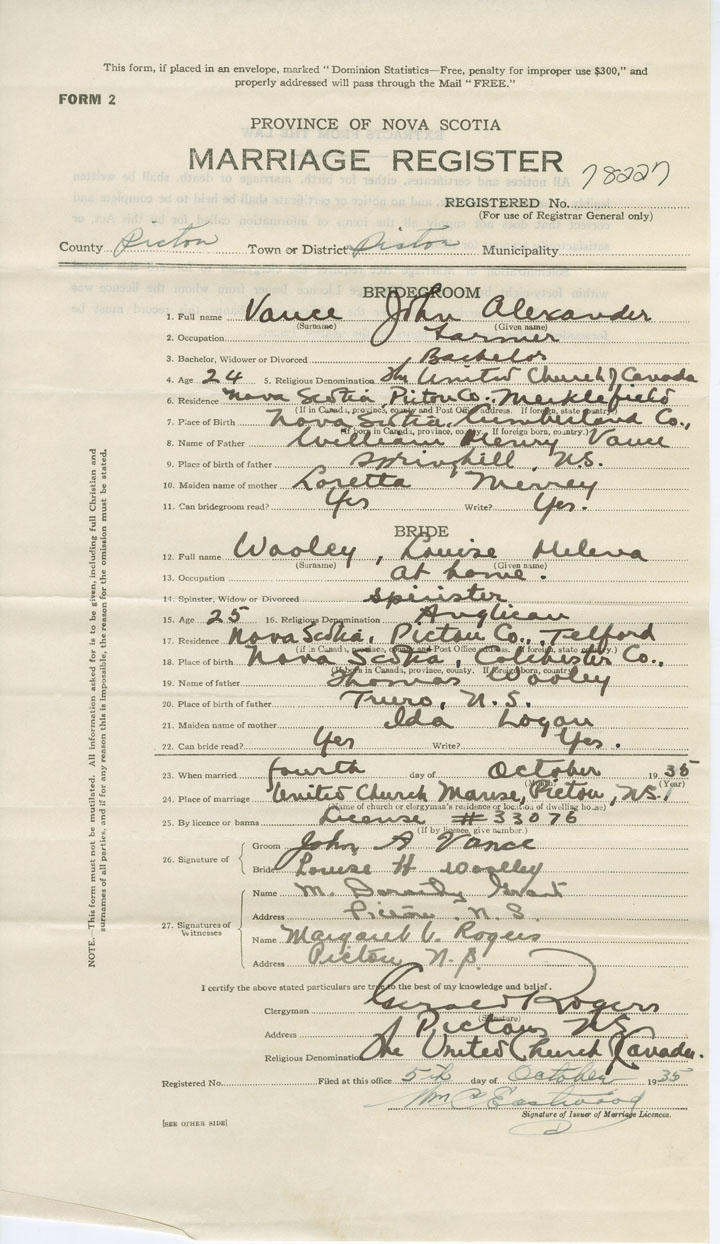 This form, if placed in an envelope, marked "Dominion Statistics—Free, penalty for improper use $300," and
properly addressed will pass through the Mail "FREE."
FORM 2
PROVINCE OF NOVA SCOTIA
MARRIAGE REGISTER
78227
REGISTERED No.
(For use of Registrar General only)
County Pictou Town or District Pictou Municipality
BRIDEGROOM
1. Full name Vance John Alexander
(Surname) (Given name)
2. Occupation Farmer
3. Bachelor, Widower or Divorced Bachelor
4. Age 24 5. Religious Denomination The United Church of Canada
6. Residence Nova Scotia, Pictou Co., Merklefield
(If in Canada, province, county and Post Office address. If foreign, state country.)
7. Place of Birth Nova Scotia, Cumberland Co.,
(If born in Canada, province, county. If foreign born, country.)
8. Name of Father William Henry Vance
9. Place of birth of father Springhill, N.S.
10. Maiden name of mother Loretta Merrey
11. Can bridegroom read? Yes Write? Yes.
BRIDE
12. Full name Wooley, Louise Helena
(Surname) (Given name)
13. Occupation at home.
14. Spinster, Widow or Divorced spinster
15. Age 25 16. Religious Denomination Anglican
17. Residence Nova Scotia, Pictou Co., Telford
(if in Canada, province, county and Post Office address. If foreign, state country.)
18. Place of birth Nova Scotia, Colchester Co.,
(If born in Canada, province, county. If foreign born, country.)
19. Name of father Thomas Wooley
20. Place of birth of father Truro, N.S.
21. Maiden name of mother Ida Logan
22. Can bride read? Yes Write? Yes.
23. When married fourth day of October 1935
(Month) (Year)
24. Place of marriage United Church Manse, Pictou, N.S.
(Name of church or clergyman's residence or location of dwelling house)
25. By licence or banns License #33076
(If by licence, give number.)
26. Signature of Groom John A Vance
Bride Louise H Woolley
27. Signatures of Witnesses
Name M. Dorothy Grant
Address Pictou, N.S.
Name Margaret V. Rogers
Address Pictou N.S.
I certify the above stated particulars are true to the best of my knowledge and belief.
Clergyman Gerald Rogers
(Signature)
Address Pictou NS
Religious Denomination The United Church of Canada.
Registered No. Filed at this office 5th day of October 1935
Wm C Eastwood
Signature of Issuer of Marriage Licences.
[SEE OTHER SIDE]
NOTE.—This form must not be mutilated. All information asked for is to be given, including full Christian and
surnames of all parties, and if for any reason this is impossible, the reason for the omission must be stated.